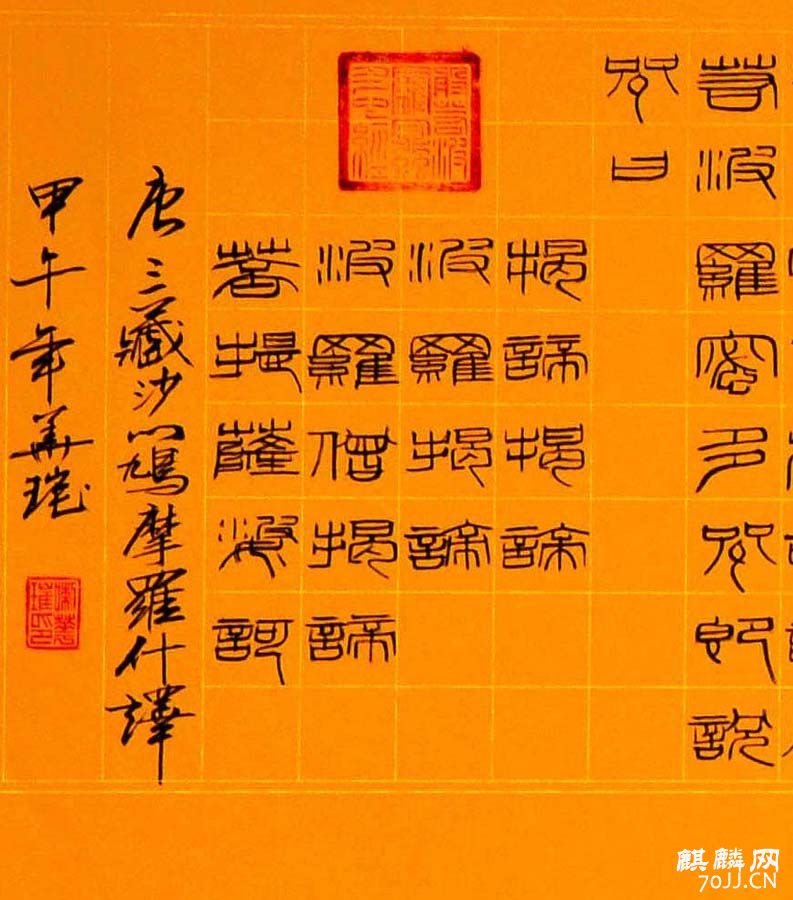 若波羅密多咒即說
咒曰
揭諦揭諦
波羅揭諦
波羅僧揭諦
菩提薩婆訶
唐三藏沙門鳩摩羅什譯
甲午年華
麒麟网
70JJ.CN